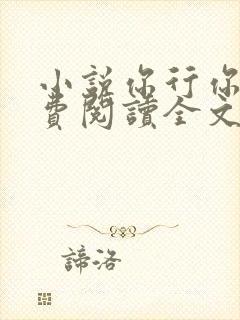 小說你行你
費閱讀全文
諦洛